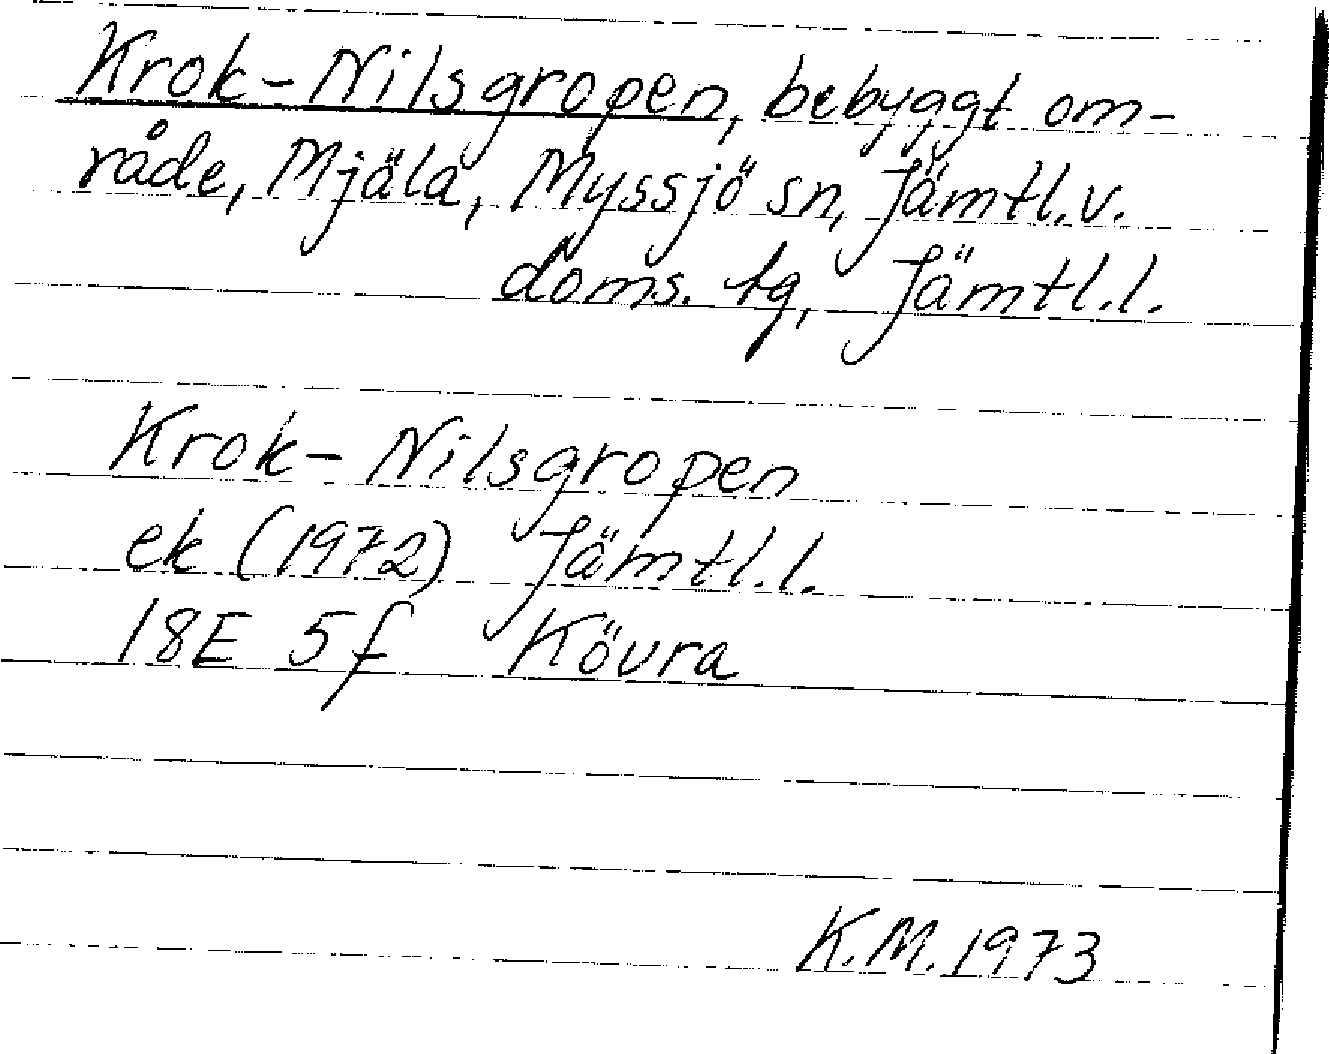 Krok-Nilsgropen, bebyggt om-
råde, Mjäla, Myssjö sn, Jämtl.v.
doms. tg, Jämtl.l.
Krok-Nilsgropen
ek (1972) Jämtl.l.
18E 5f Kövra
K.M.1973